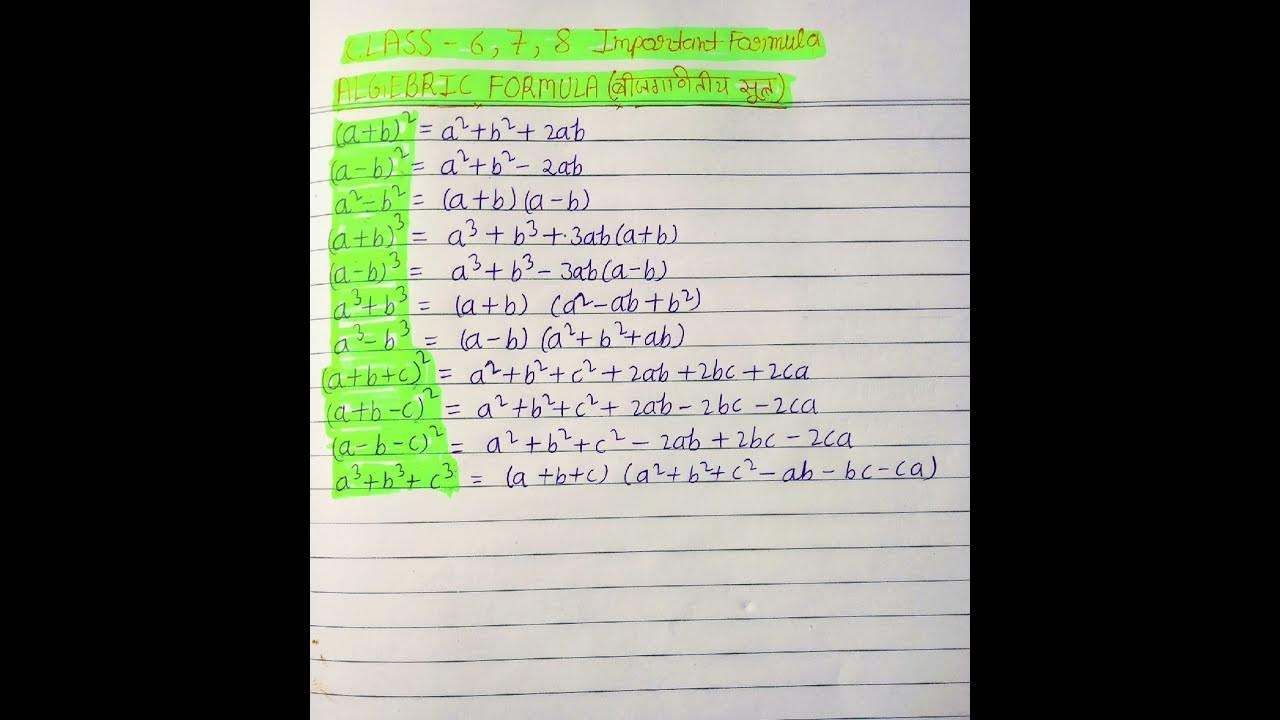 CLASS - 6, 7, 8 Important Formula
ALGEBRIC FORMULA (बीजगणितीय सूत्र)
(a+b)² = a²+b²+2ab
(a-b)² = a²+b²-2ab
a²-b² = (a+b)(a-b)
(a+b)³ = a³+b³+3ab(a+b)
(a-b)³ = a³+b³-3ab(a-b)
a³+b³ = (a+b) (a²-ab+b²)
a³-b³ = (a-b) (a²+b²+ab)
(a+b+c)² = a²+b²+c²+2ab+2bc+2ca
(a+b-c)² = a²+b²+c²+2ab-2bc-2ca
(a-b-c)² = a²+b²+c²-2ab+2bc-2ca
a³+b³+c³ = (a+b+c) (a²+b²+c²-ab-bc-ca)